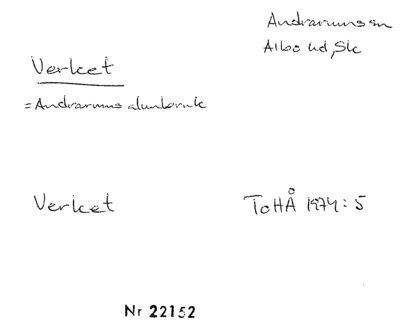 Andrarums sn
Albo hd, Sk
Verket
= Andrarums alunbruk
Verket
ToHÅ 1974: 5
Nr 22152